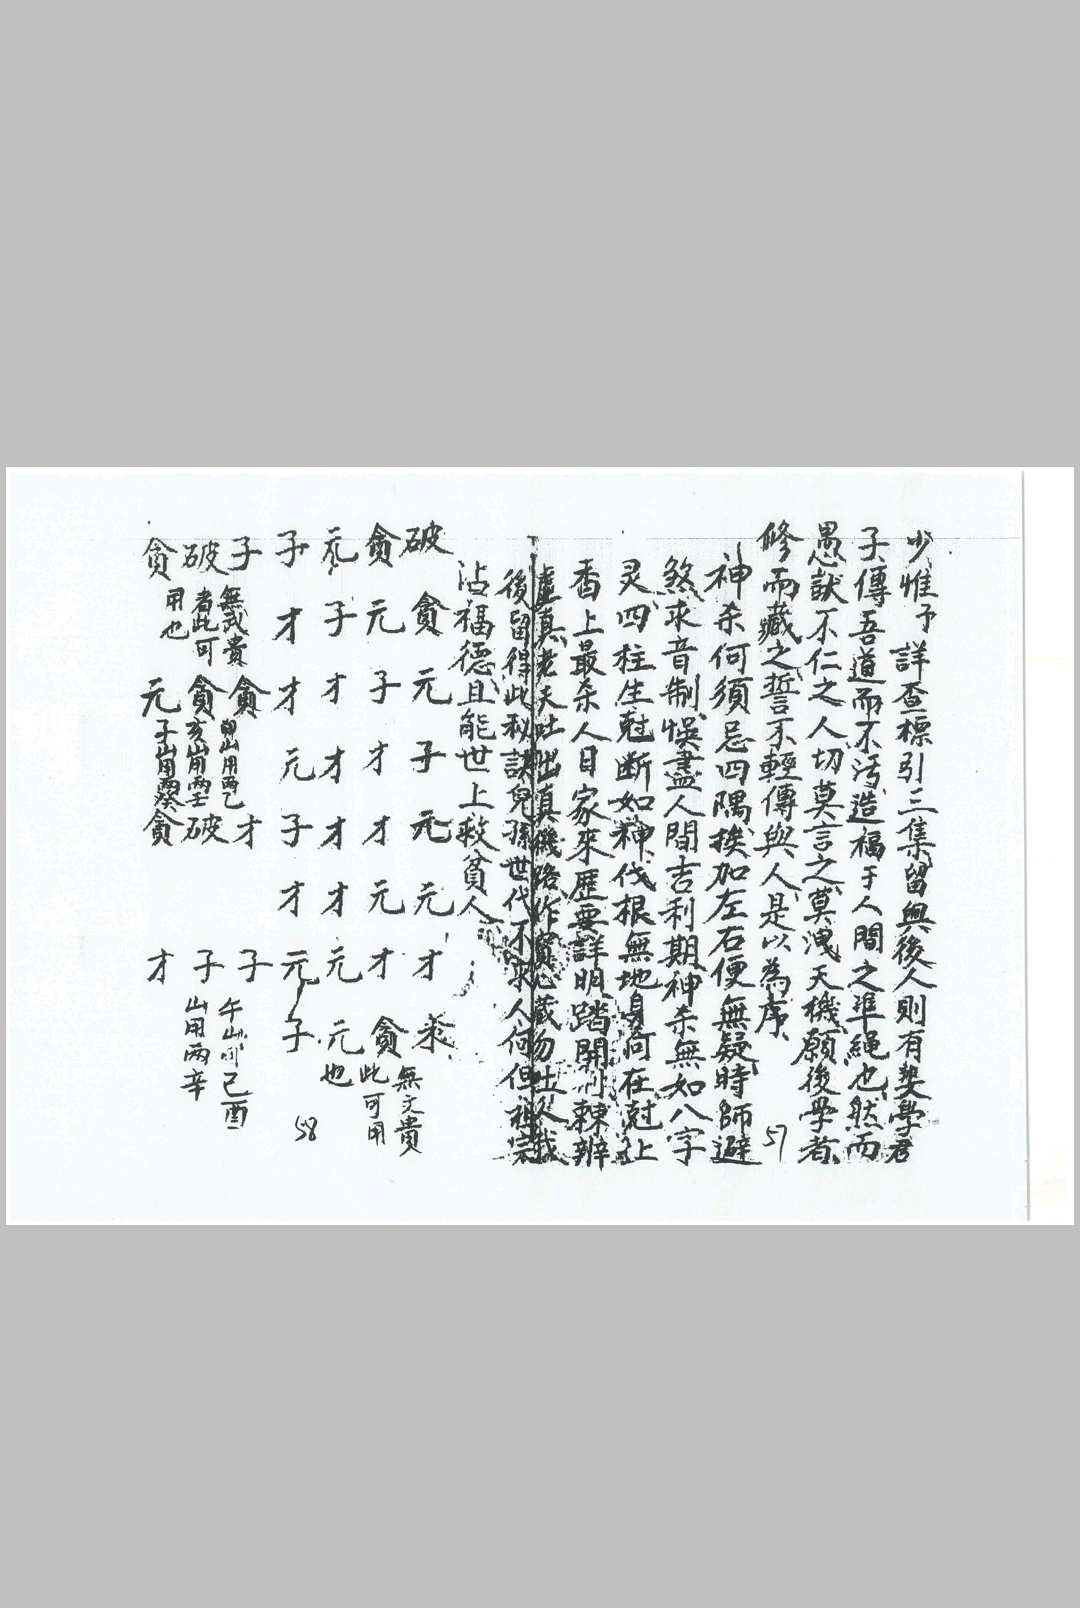 少惟予詳查標引三集留與後人則有契學君
子傳吾道而不污造福于人間之準繩也然而
愚獃不仁之人切莫言之莫洩天機願後學者
修而藏之誓不輕傳與人是以為序
57
神杀何須忌四隅挨加左右便無疑時師避
煞求音制悞盡人間吉利期神杀無如八字
灵四柱生尅断如神伐根無地身何在尅上
香上最杀人目家來歷要詳明踏開荊棘辨
虛真老夫吐出真機
後留得此秘訣兒孫世代不求人何但祖宗
沾福德且能世上救貧人
破貪元子元元才
貪元子才才元才貪無文貴此可用
元子才才才才元元也
子才才元子才元子
58
子無武貴者此可用也貪申山用兩乙才子午山用己酉
破貪亥山用兩壬破子山用兩辛
貪元子山用兩癸貪才